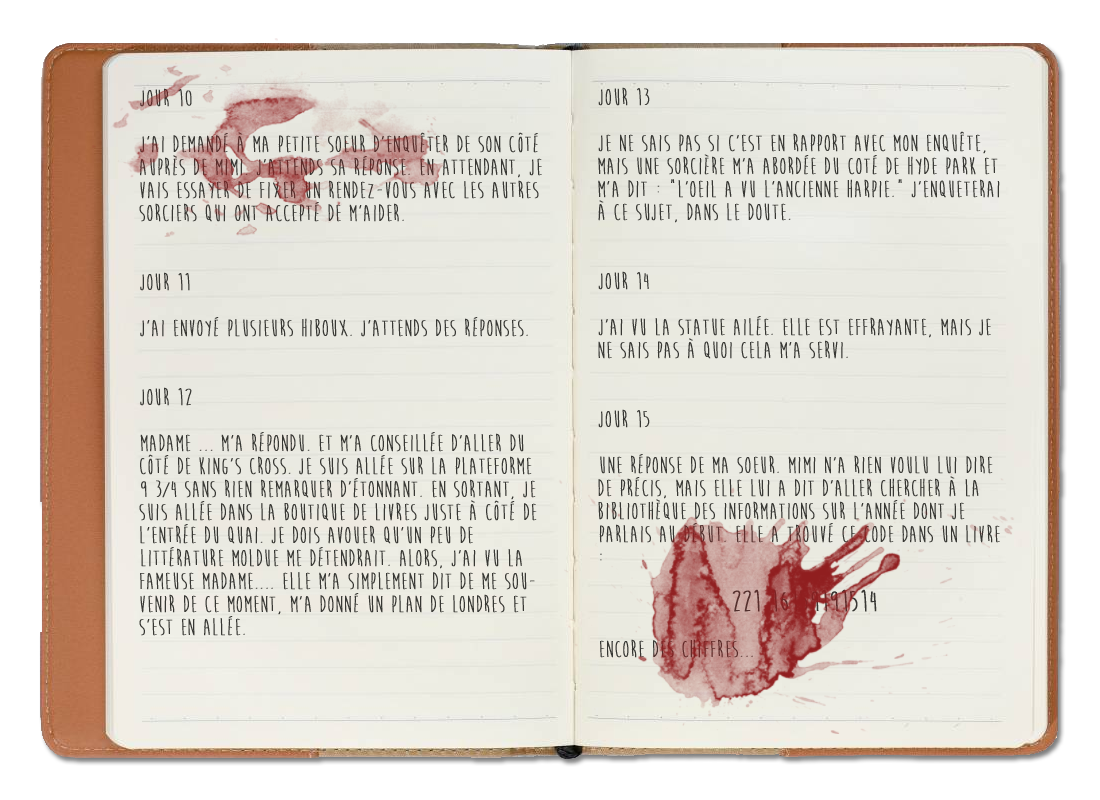 JOUR 10
J'AI DEMANDÉ À MA PETITE SOEUR D'ENQUÊTER DE SON CÔTÉ
AUPRÈS DE MIMI. J'ATTENDS SA RÉPONSE. EN ATTENDANT, JE
VAIS ESSAYER DE FIXER UN RENDEZ-VOUS AVEC LES AUTRES
SORCIERS QUI ONT ACCEPTÉ DE M'AIDER.
JOUR 11
J'AI ENVOYÉ PLUSIEURS HIBOUX. J'ATTENDS DES RÉPONSES.
JOUR 12
MADAME ... M'A RÉPONDU. ET M'A CONSEILLÉE D'ALLER DU
CÔTÉ DE KING'S CROSS. JE SUIS ALLÉE SUR LA PLATEFORME
9 3/4 SANS RIEN REMARQUER D'ÉTONNANT. EN SORTANT, JE
SUIS ALLÉE DANS LA BOUTIQUE DE LIVRES JUSTE À CÔTÉ DE
L'ENTRÉE DU QUAI. JE DOIS AVOUER QU'UN PEU DE
LITTÉRATURE MOLDUE ME DÉTENDRAIT. ALORS, J'AI VU LA
FAMEUSE MADAME.... ELLE M'A SIMPLEMENT DIT DE ME SOU-
VENIR DE CE MOMENT, M'A DONNÉ UN PLAN DE LONDRES ET
S'EST EN ALLÉE.
JOUR 13
JE NE SAIS PAS SI C'EST EN RAPPORT AVEC MON ENQUÊTE,
MAIS UNE SORCIÈRE M'A ABORDÉE DU COTÉ DE HYDE PARK ET
M'A DIT : "L'OEIL A VU L'ANCIENNE HARPIE." J'ENQUETERAI
À CE SUJET, DANS LE DOUTE.
JOUR 14
J'AI VU LA STATUE AILÉE. ELLE EST EFFRAYANTE, MAIS JE
NE SAIS PAS À QUOI CELA M'A SERVI.
JOUR 15
UNE RÉPONSE DE MA SOEUR. MIMI N'A RIEN VOULU LUI DIRE
DE PRÉCIS, MAIS ELLE LUI A DIT D'ALLER CHERCHER À LA
BIBLIOTHÈQUE DES INFORMATIONS SUR L'ANNÉE DONT JE
PARLAIS AU DÉBUT. ELLE A TROUVÉ CE CODE DANS UN LIVRE
:
221
ENCORE DES CHIFFRES...